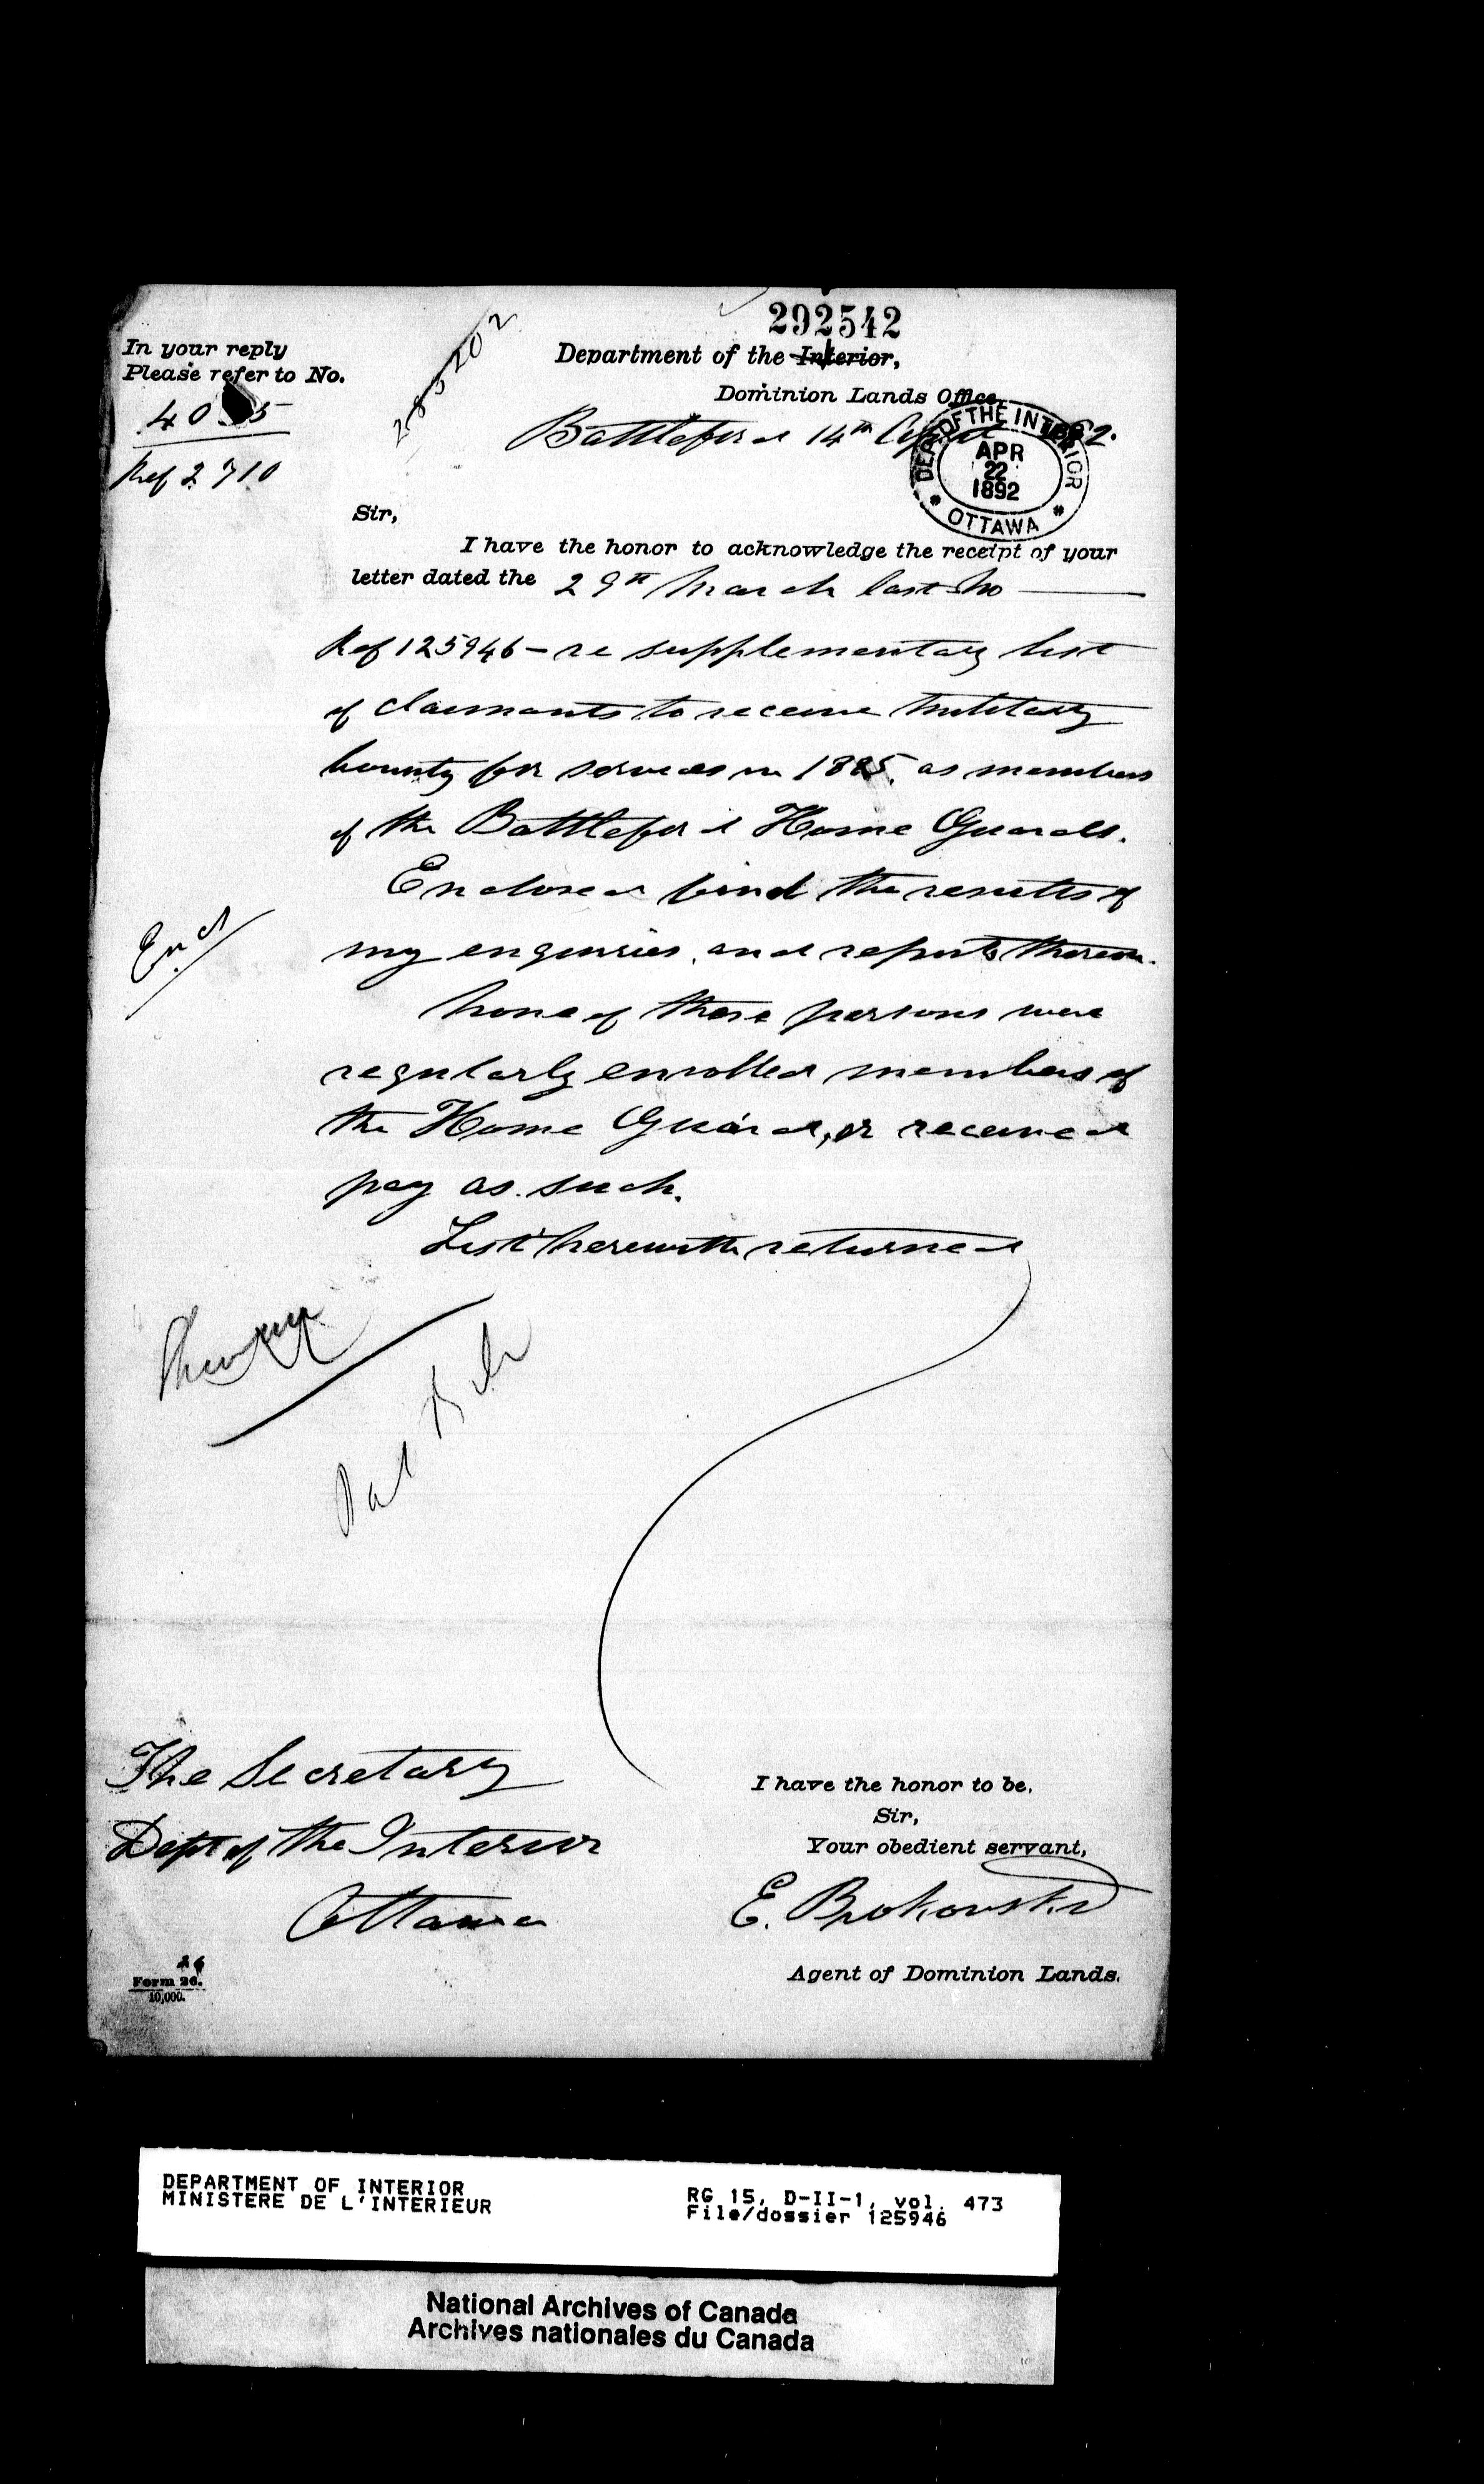 292542
In your reply
Please refer to No.
Ref 2710
285202
Department of the Interior,
Dominion Lands Office,
Battleford 14th April 1892.
DEPT. OF THE INTERIOR
APR
22
1892
OTTAWA
Sir,
I have the honor to acknowledge the receipt of your
letter dated the 29th March last No
Ref 125946 – re supplementary list
of claimants to receive Military
bounty for services in 1885, as members
of the Battleford Home Guards.
Enclosed find the results of
my enquiries, and reports thereon.
Encl
None of these persons were
regularly enrolled members of
the Home Guard, or received
pay as such.
List herewith returned
The Secretary
Dept of the Interior
Ottawa
I have the honor to be,
Sir,
Your obedient servant,
E. Brokovski
Agent of Dominion Lands.
Form 26.
10,000.
DEPARTMENT OF INTERIOR
MINISTERE DE L'INTERIEUR
RG 15, D-II-1, vol. 473
File/dossier 125946
National Archives of Canada
Archives nationales du Canada